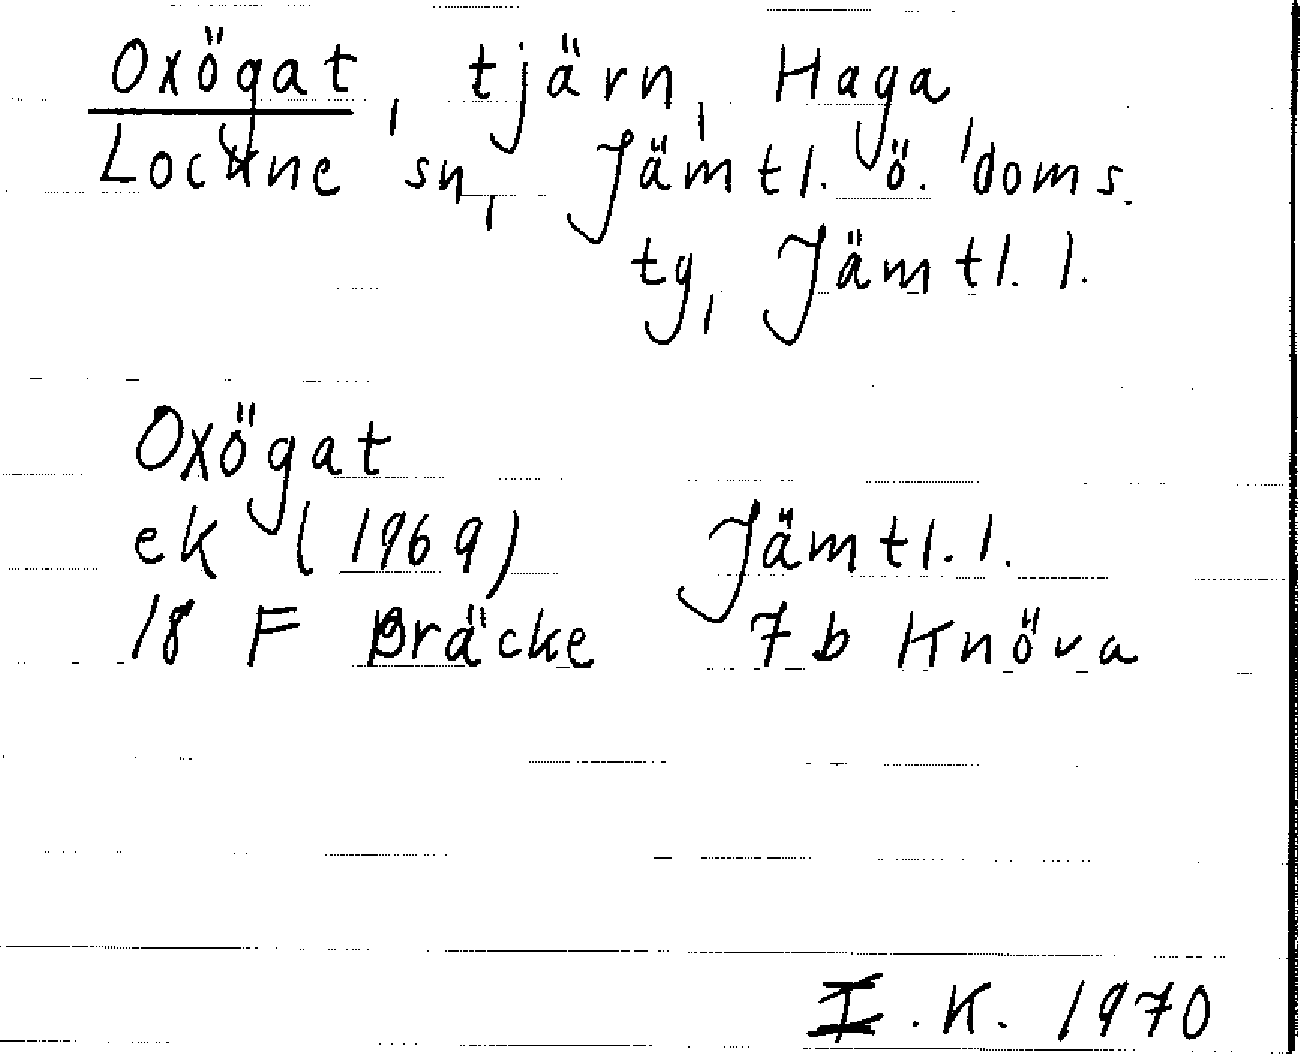 Oxögat, tjärn, Haga,
Lockne sn, Jämtl. ö. doms.
tg, Jämtl. l.
Oxögat
ek (1969) Jämtl. l.
18 F Bräcke 7 b Knöva
I. K. 1970